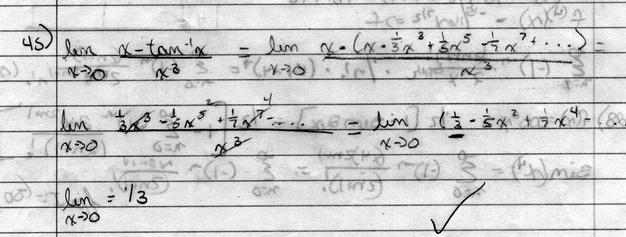 45) lim x→0 x - tan⁻¹x / x³ = lim x→0 x - (x - 1/3 x³ + 1/5 x⁵ - 1/7 x⁷ + ...) / x³ =
lim x→0 1/3 x³ - 1/5 x⁵ + 1/7 x⁷ - ... / x³ = lim x→0 (1/3 - 1/5 x² + 1/7 x⁴ -
lim x→0 = 1/3